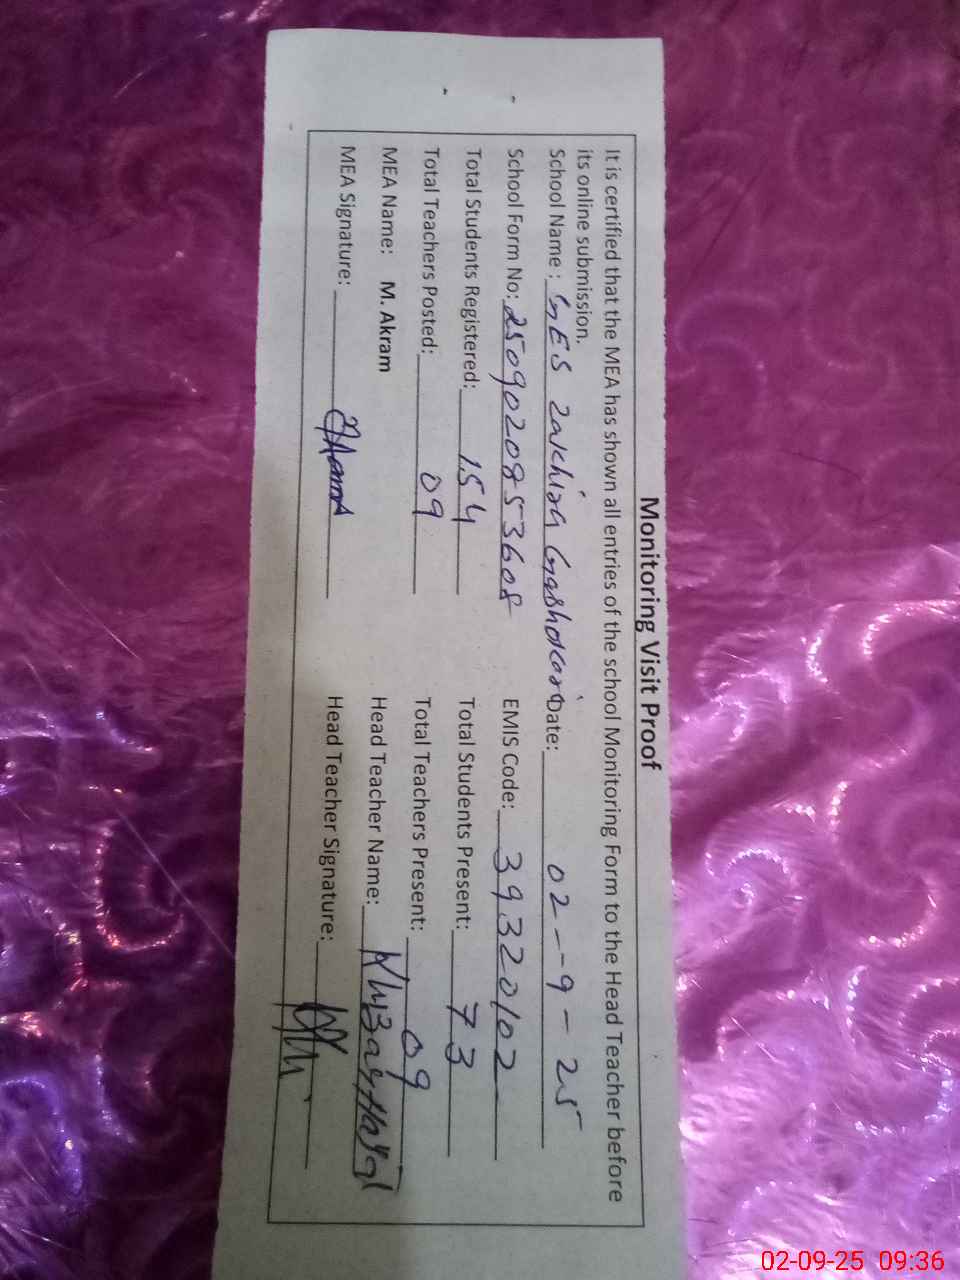 Monitoring Visit Proof
It is certified that the MEA has shown all entries of the school Monitoring Form to the Head Teacher before
its online submission.
School Name : GES Zakhira Gashdcori Date: 02-9-25
School Form No: 2509020853608 EMIS Code: 39320102
Total Students Registered: 154 Total Students Present: 73
Total Teachers Posted: 09 Total Teachers Present: 09
MEA Name: M. Akram Head Teacher Name:
MEA Signature: Head Teacher Signature:
02-09-25 09:36